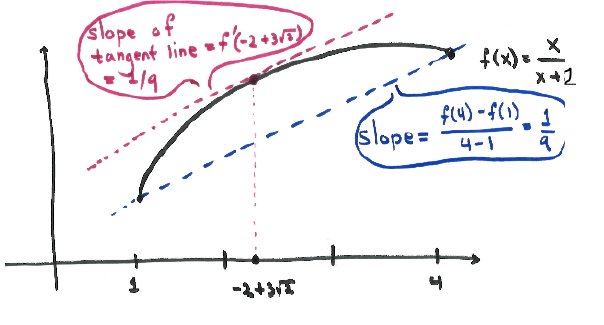 slope of
tangent line = f'(-2+3√2)
= 1/9
f(x) = x/(x+2)
slope = (f(4) - f(1))/(4-1) = 1/9
1
-2+3√2
4